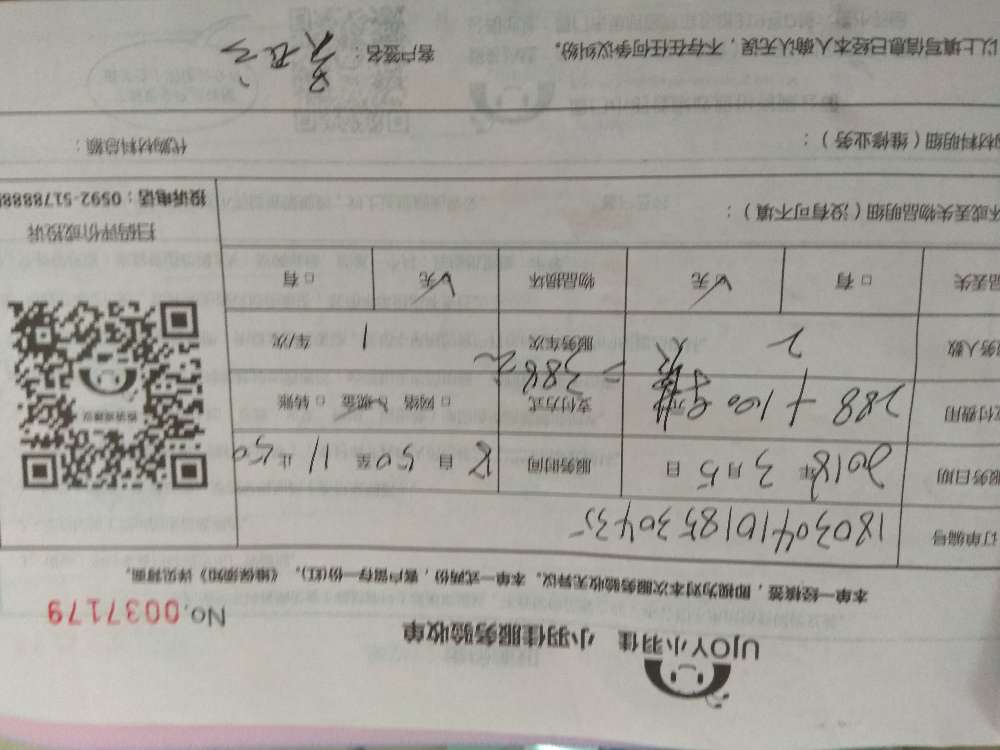 UJOY小羽佳 小羽佳服务验收单
No.0037179
本单一经核签，即视为对本次服务验收无异议。本单一式两份，客户留存一份(红)。《维保须知》详见背面。
订单编号 180304101853043
服务日期 2018年3月5日 服务时间 自 8 50至 11 50止
付费用 288+100 =388元 支付方式 □网络 ☑现金 □转账
务人数 2人 服务车次 1 车/次
品丢失 □有 ☑无 物品损坏 ☑无 □有
坏或丢失物品明细（没有可不填）：
扫码评价或投诉
投诉电话：0592-5178888
材料明细（维修业务）： 代购材料总额：
以上填写信息已经本人确认无误，不存在任何争议纠纷。 客户签名：